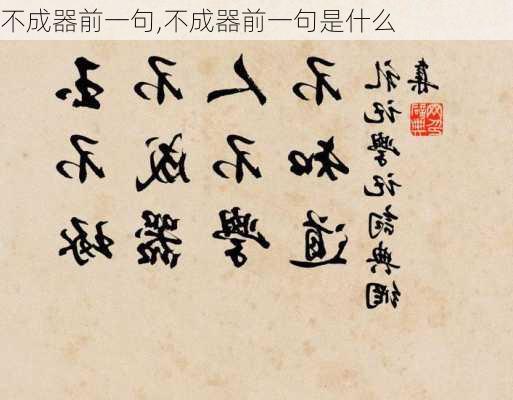 不成器前一句,不成器前一句是什么
玉不琢
不成器
人不學
不知道
礼记學记詞典網
集